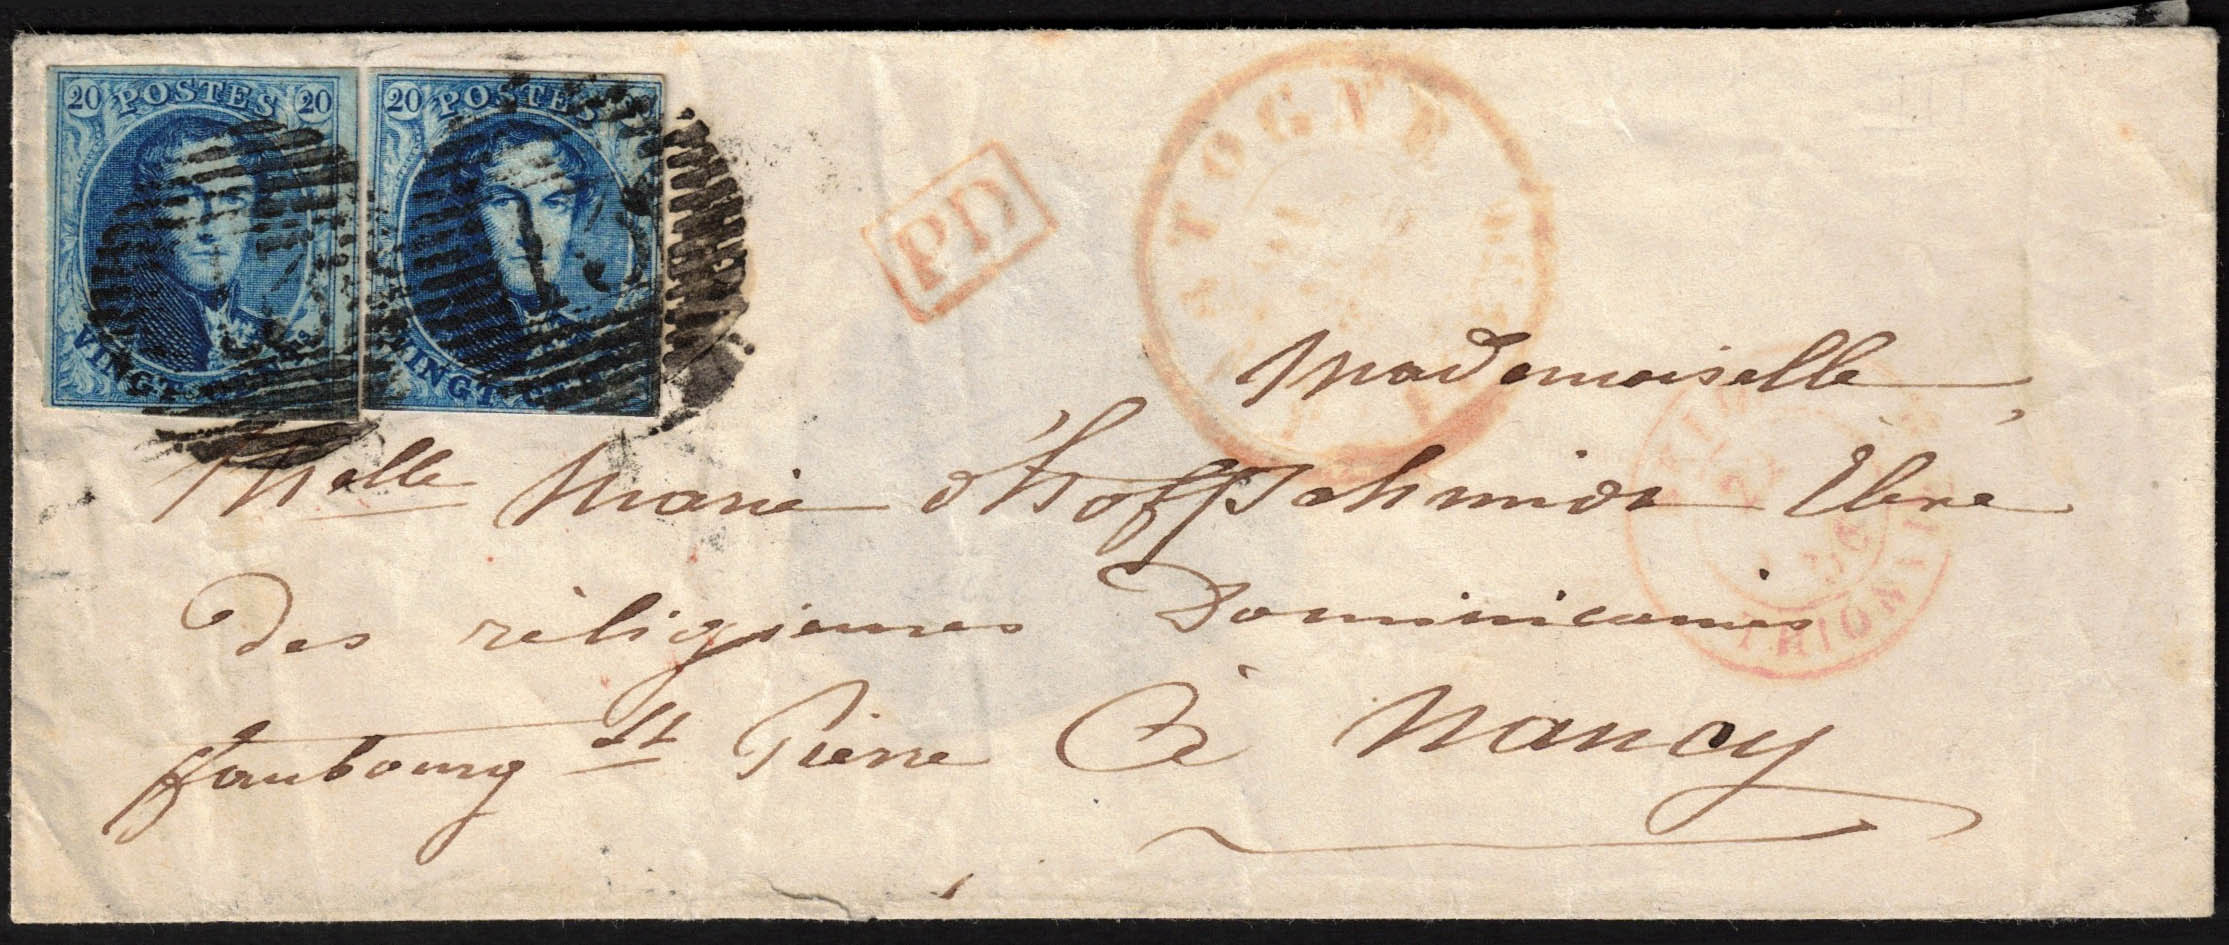 20 POSTES 20
VINGT CENT
20 POSTES
VINGT CE
PD
BASTOGNE
THIONVILLE
Mademoiselle,
Melle Marie d'hoffschmidt Elève
des réligieuses Dominicaines
ffaubourg St Pierre à
Nancy